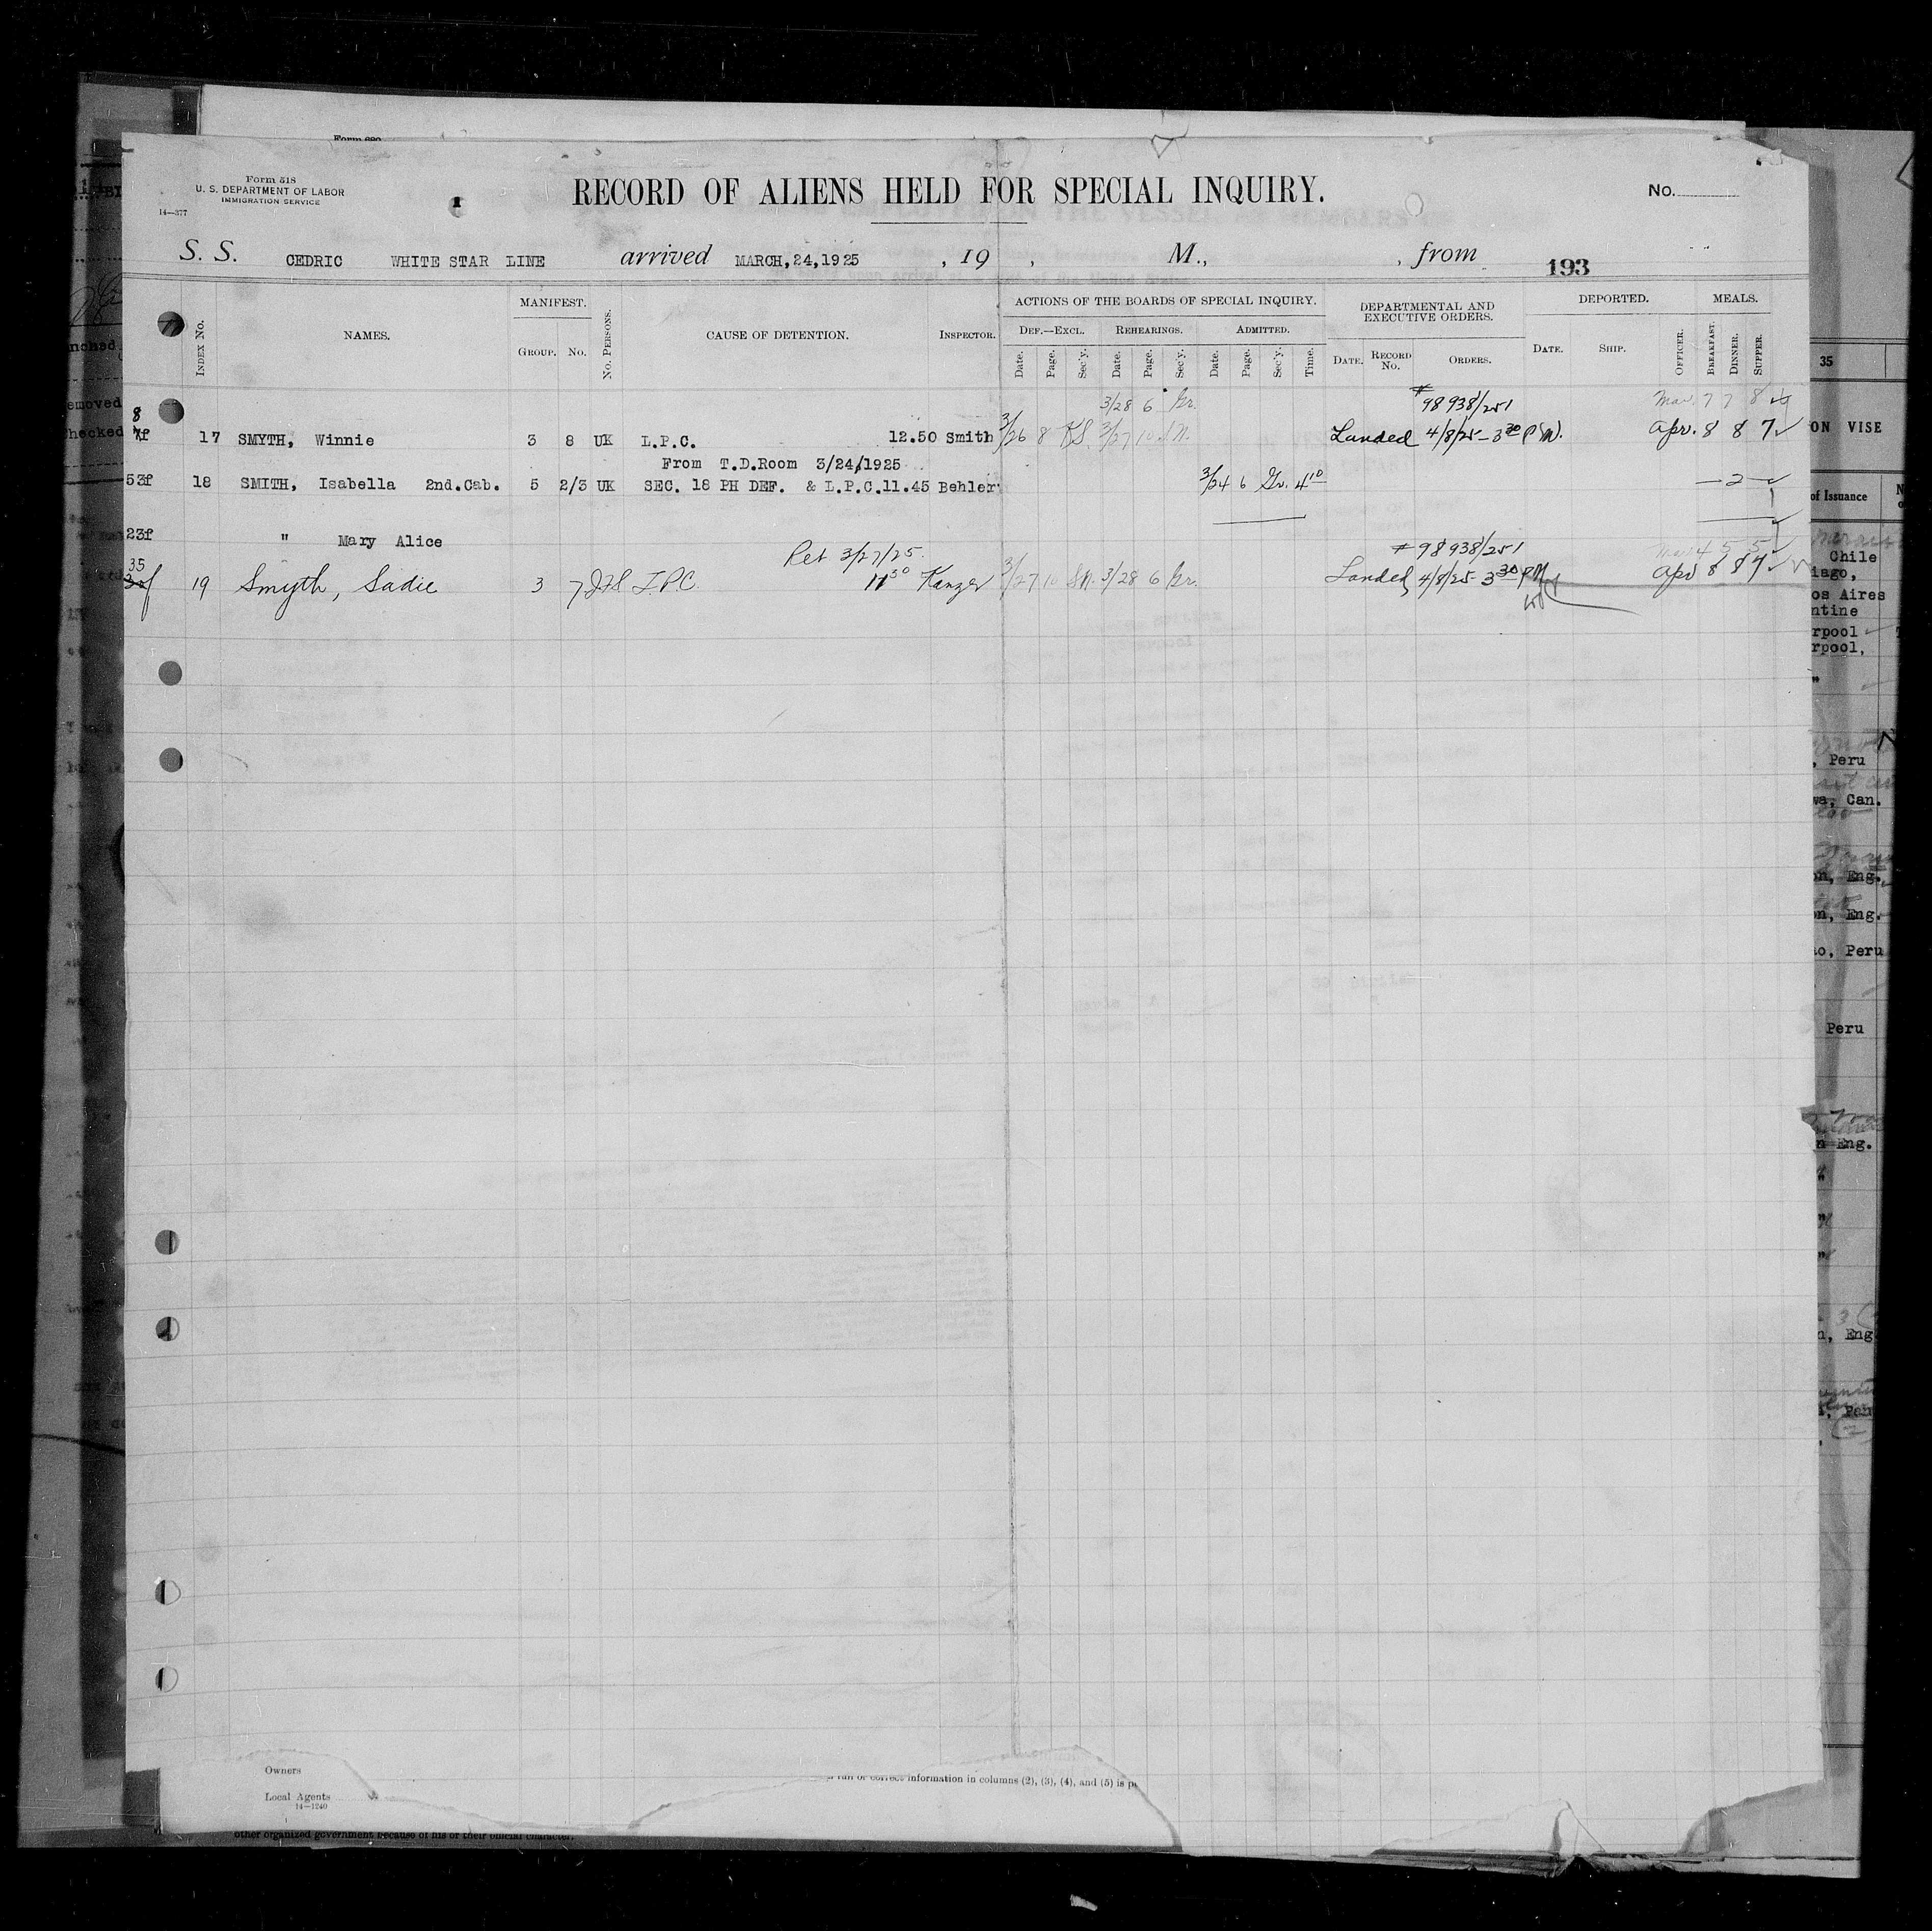 Form 518
U. S. DEPARTMENT OF LABOR
IMMIGRATION SERVICE
14—377
RECORD OF ALIENS HELD FOR SPECIAL INQUIRY.
No.
S. S. CEDRIC WHITE STAR LINE arrived MARCH,24,1925 , 19 , M., , from 193
INDEX No. NAMES. MANIFEST. GROUP. No. No. PERSONS. CAUSE OF DETENTION. INSPECTOR. ACTIONS OF THE BOARDS OF SPECIAL INQUIRY. DEF.—EXCL. REHEARINGS. ADMITTED. DEPARTMENTAL AND EXECUTIVE ORDERS. DEPORTED. MEALS.
Date. Page. Sec'y. Date. Page. Sec'y. Date. Page. Sec'y. Time. DATE. RECORD No. ORDERS. DATE. SHIP. OFFICER. BREAKFAST. DINNER. SUPPER.
8 3/28 6 Gr. # 98938/251 Mar. 7 7 8
7f 17 SMYTH, Winnie 3 8 UK L.P.C. 12.50 Smith 3/26 8 3/27 10 S.N. Landed 4/8/25 - 3 30 P.M. Apr. 8 8 7
From T.D.Room 3/24/1925
53f 18 SMITH, Isabella 2nd.Cab. 5 2/3 UK SEC. 18 PH DEF. & L.P.C.11.45 Behler 3/24 6 Gr. 4 10 — 2 —
23f " Mary Alice 1
Ret 3/27/25. # 98938/251 Mar 4 5 5
35
f 19 Smyth, Sadie 3 7 L.P.C. 11 30 Kanzer 3/27 10 S.N. 3/28 6 Gr. Landed 4/8/25 - 3 30 P.M. Apr 8 8 7
35
ON VISE
of Issuance
Chile
iago,
os Aires
ntine
rpool
rpool,
, Peru
wa, Can.
on, Eng.
on, Eng.
ao, Peru
Peru
n Eng.
n, Eng
Owners
Local Agents
14—1240
correct information in columns (2), (3), (4), and (5) is
other organized government because of his or their official character.